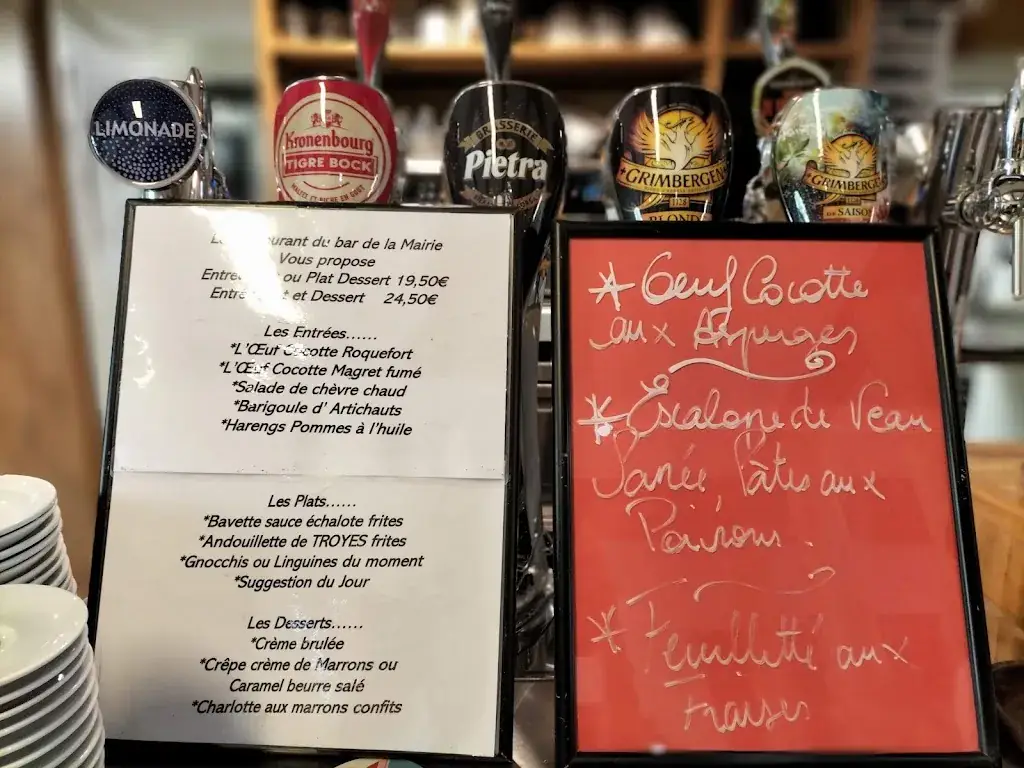 LIMONADE
Kronenbourg
TIGRE BOCK
BRASSERIE
Pietra
GRIMBERGEN
BLONDE
GRIMBERGEN
DE SAISON
du bar de la Mairie
Vous propose
ou Plat Dessert 19,50€
et Dessert 24,50€
Les Entrées......
*L'Œuf Cocotte Roquefort
*L'Œuf Cocotte Magret fumé
*Salade de chèvre chaud
*Barigoule d' Artichauts
*Harengs Pommes à l'huile
Les Plats......
*Bavette sauce échalote frites
*Andouillette de TROYES frites
*Gnocchis ou Linguines du moment
*Suggestion du Jour
Les Desserts......
*Crème brulée
*Crêpe crème de Marrons ou
Caramel beurre salé
*Charlotte aux marrons confits
* Oeuf Cocotte
aux Asperges
* Escalope de Veau
Panée, Pâtes aux
Poivrons.
* Feuilletté aux
fraises